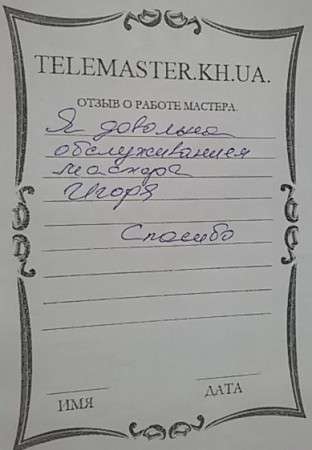 TELEMASTER.KH.UA.
ОТЗЫВ О РАБОТЕ МАСТЕРА.
Я довольна
обслуживанием
мастера
Игоря
Спасибо
ИМЯ
ДАТА